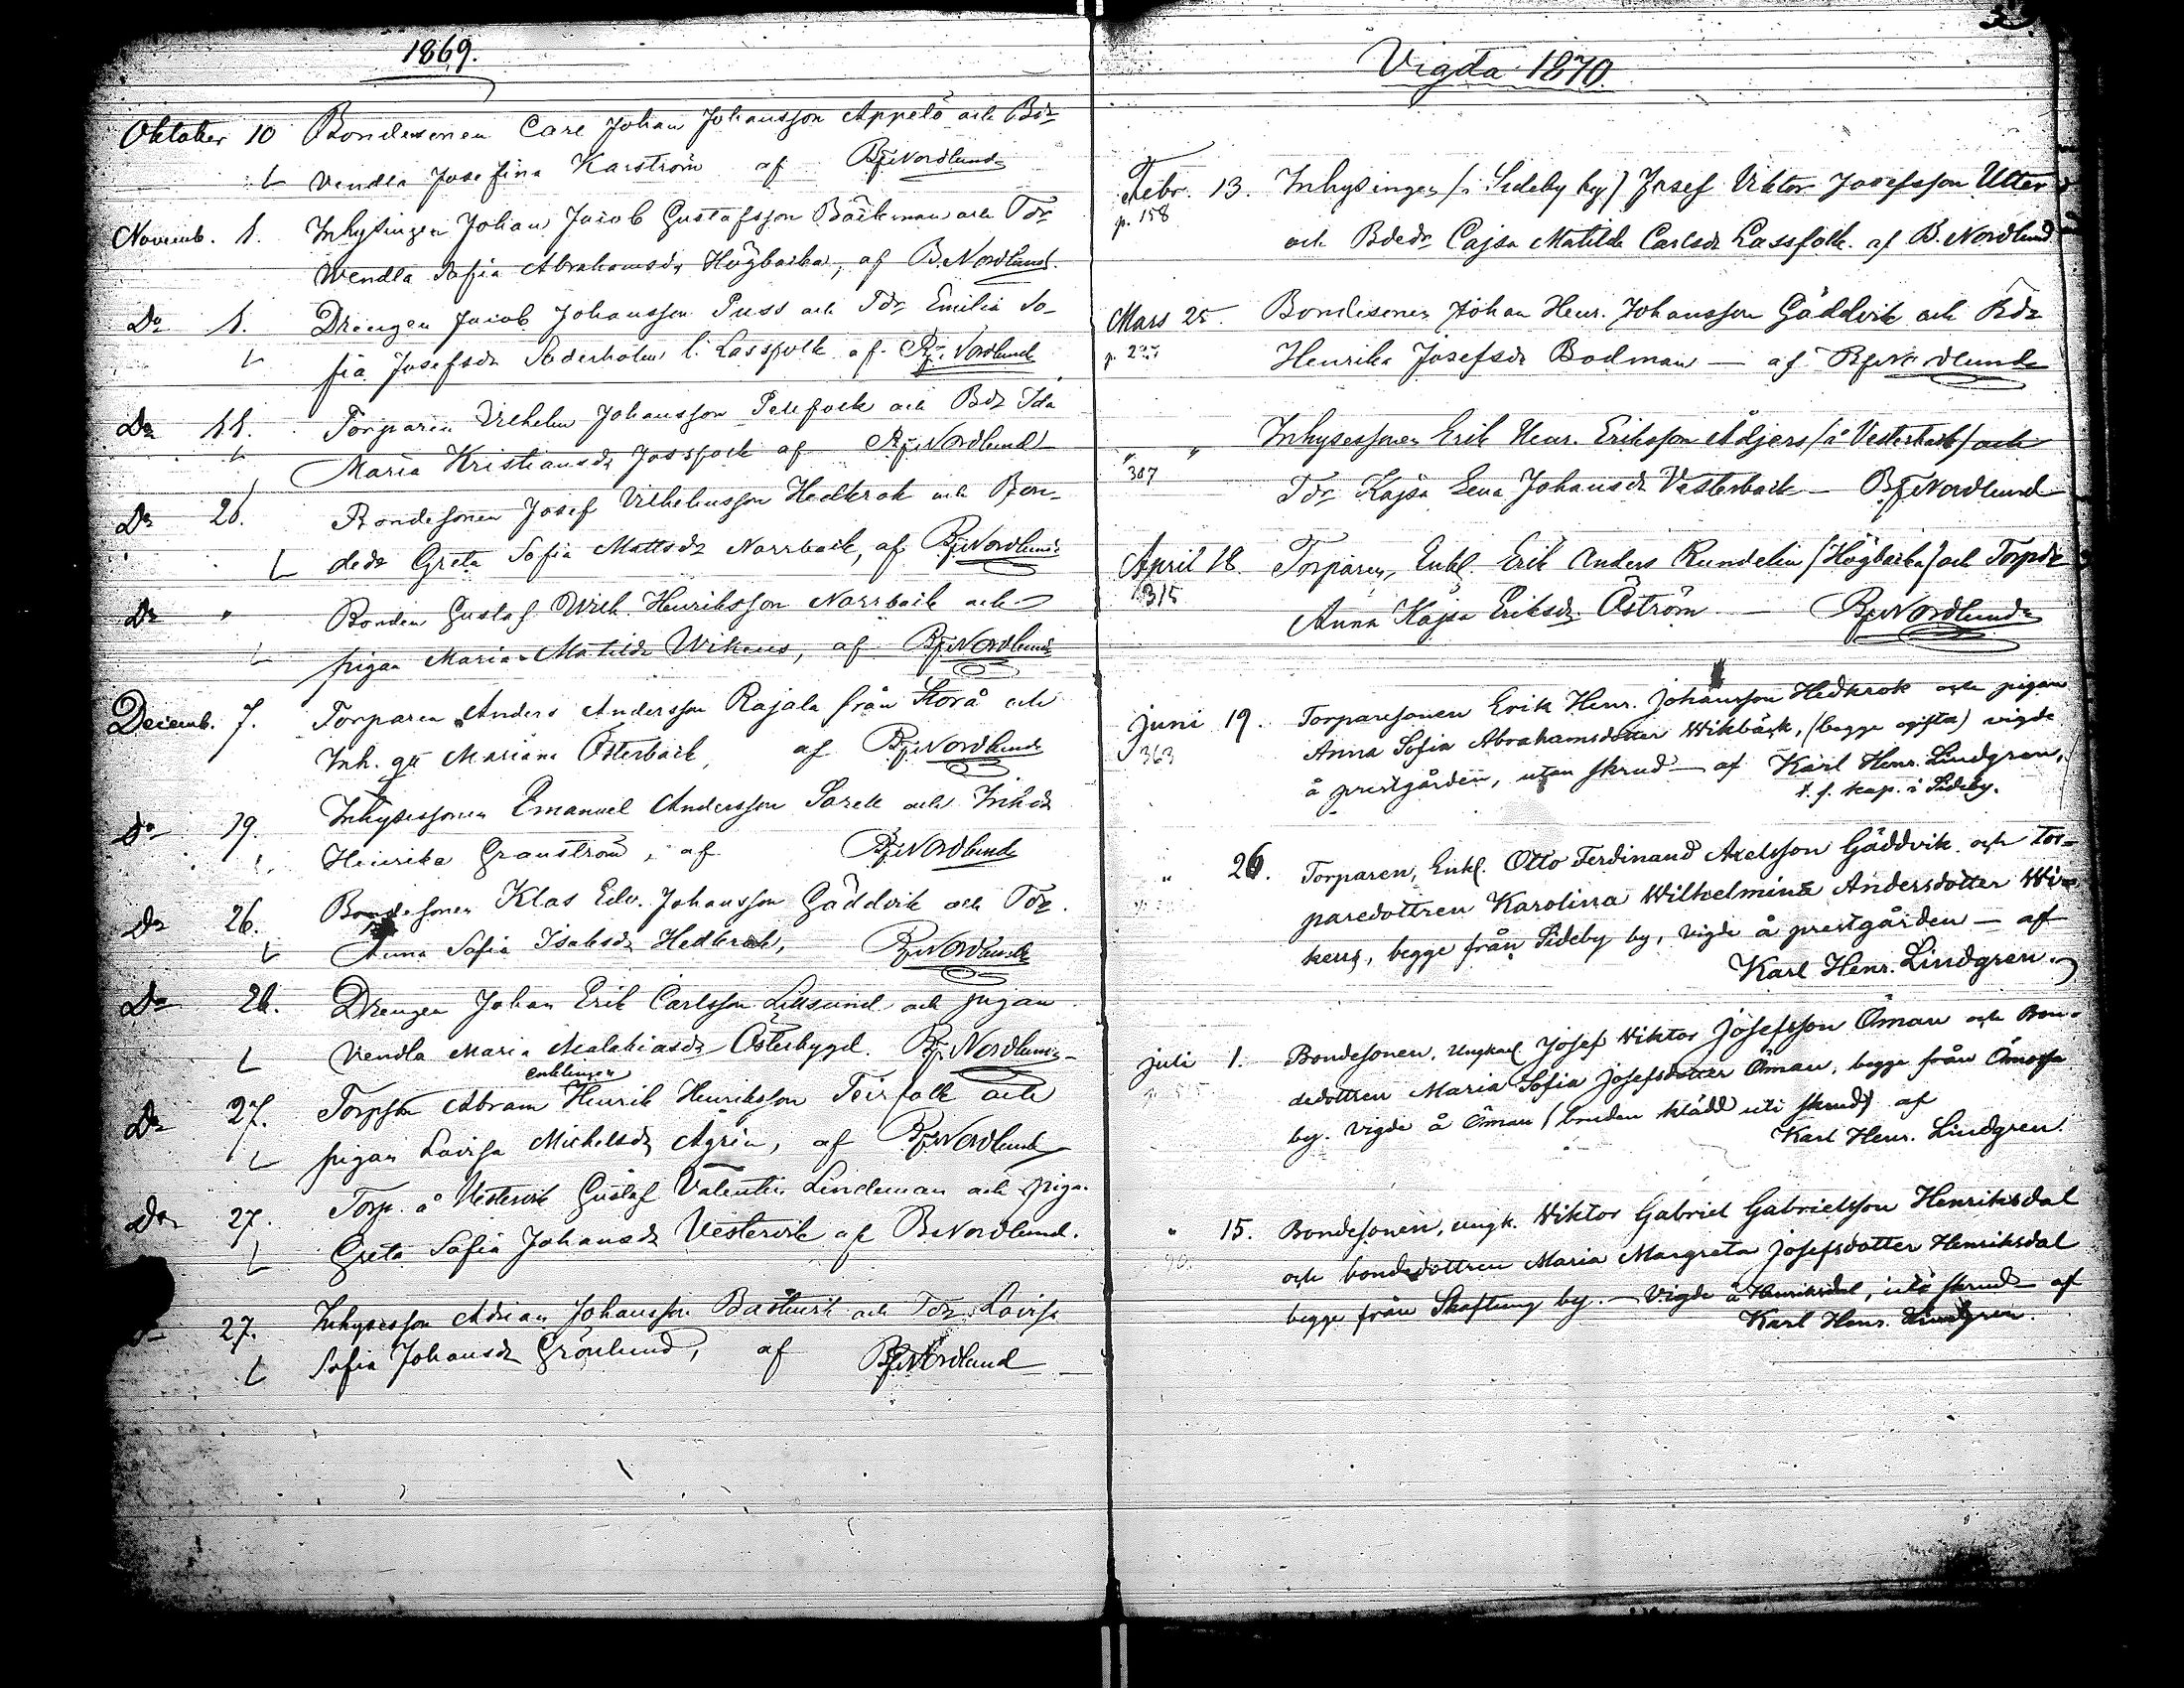 1869.
Oktober 10 Bondesonen Carl Johan Johansson Appelö och Bdr
Vendla Josefina Karström af BjNordlund
Novemb. 1. Inhysingen Johan Jacob Gustafsson Bäckman och Tdr
Wendla Sofia Abrahamsdr Högbacka, af B. Nordlund.
Do 1. Drengen Jacob Johansson Puss och Tdr Emilia So-
fia Josefsdr Söderholm l. Lassfolk af Bj. Nordlund
Do 11. Torparen Vilhelm Johansson och Bdr Ida
Maria Kristiansdr Jossfolk af BjNordlund
Do 21. Bondesonen Josef Vilhelmsson Hedkrok och Bon-
dedr Greta Sofia Mattsdr Norrback, af BjNordlund
Do " Bonden Gustaf Wilh. Henriksson Norrback och
pigan Maria Matilda Wikens, af BjNordlund
Decemb. 7. Torparen Anders Andersson Rajala från Storå och
Inh. Mariana Österback, af BjNordlund
Do 19. Inhysessonen Emanuel Andersson och Inhdr
Henrika Granström, af BjNordlund
Do 26. Bondesonen Klas Edv. Johansson Gäddvik och Tdr.
Anna Sofia Isaksdr Hedkrok, BjNordlund
Do 26. Drengen Johan Erik Carlsson Lillsund och pigan
Vendla Maria Malakiasdr Österbygd. Bj. Nordlund
enklingen
Do 27. Torpson Abram Henrik Henriksson Teirfolk och
pigan Lovisa Mickelsdr Agrén, af BjNordlund
Do 27. Torp. å Vestervik Gustaf Valentin Lindeman och piga.
Greta Sofia Johansdr Vestervik af B. Nordlund.
27. Inhysesson Adrian Johansson och Tdr Lovisa
Sofia Johansdr Grönlund, af BjNordlund
Vigda 1870.
Febr. 13. Inhysingen (i Sideby by) Josef Viktor Josefsson Utter
p. 158
och Bdedr Cajsa Matilda Carlsdr Lassfolk. af B. Nordlund
Mars 25. Bondesonen Johan Henr. Johansson Gäddvik och Bdr
Henrika Josefsdr Bodman — af BjNordlund
" " Inhysessonen Erik Henr. Eriksson Åljers (å Vesterback) och
307
Tdr Kajsa Lena Johansdr Vesterback — BjNordlund
April 18. Torparen, Enkl. Erik Anders Rundelin (Högbacka) och Torpdr
315
Anna Kajsa Eriksdr Öström — BjNordlund
juni 19. Torparesonen Erik Henr. Johansson Hedkrok och pigan
363
Anna Sofia Abrahamsdotter Wikbäck, (begge ogifta) vigde
å prestgården, utan skrud — af Karl Henr. Lindgren,
t. f. kap. i Sideby.
" 26. Torparen, Enkl. Otto Ferdinand Axelsson Gäddvik och Tor-
paredottren Karolina Wilhelmina Andersdotter Wi-
kens, begge från Sideby by, vigde å prestgården — af
Karl Henr. Lindgren.
juli 1. Bondesonen, Ungkarl Josef Wiktor Josefsson Öman och Bon-
dedottren Maria Sofia Josefsdotter Öman, begge från Ömossa
by. Vigde å Öman (bruden klädd uti skrud) af
Karl Henr. Lindgren.
" 15. Bondesonen, ungk. Wiktor Gabriel Gabrielsson Henriksdal
90.
och bondedottren Maria Margreta Josefsdotter Henriksdal
begge från Skaftung by. — Vigde å Henriksdal, uti skrud af
Karl Henr. Lindgren.